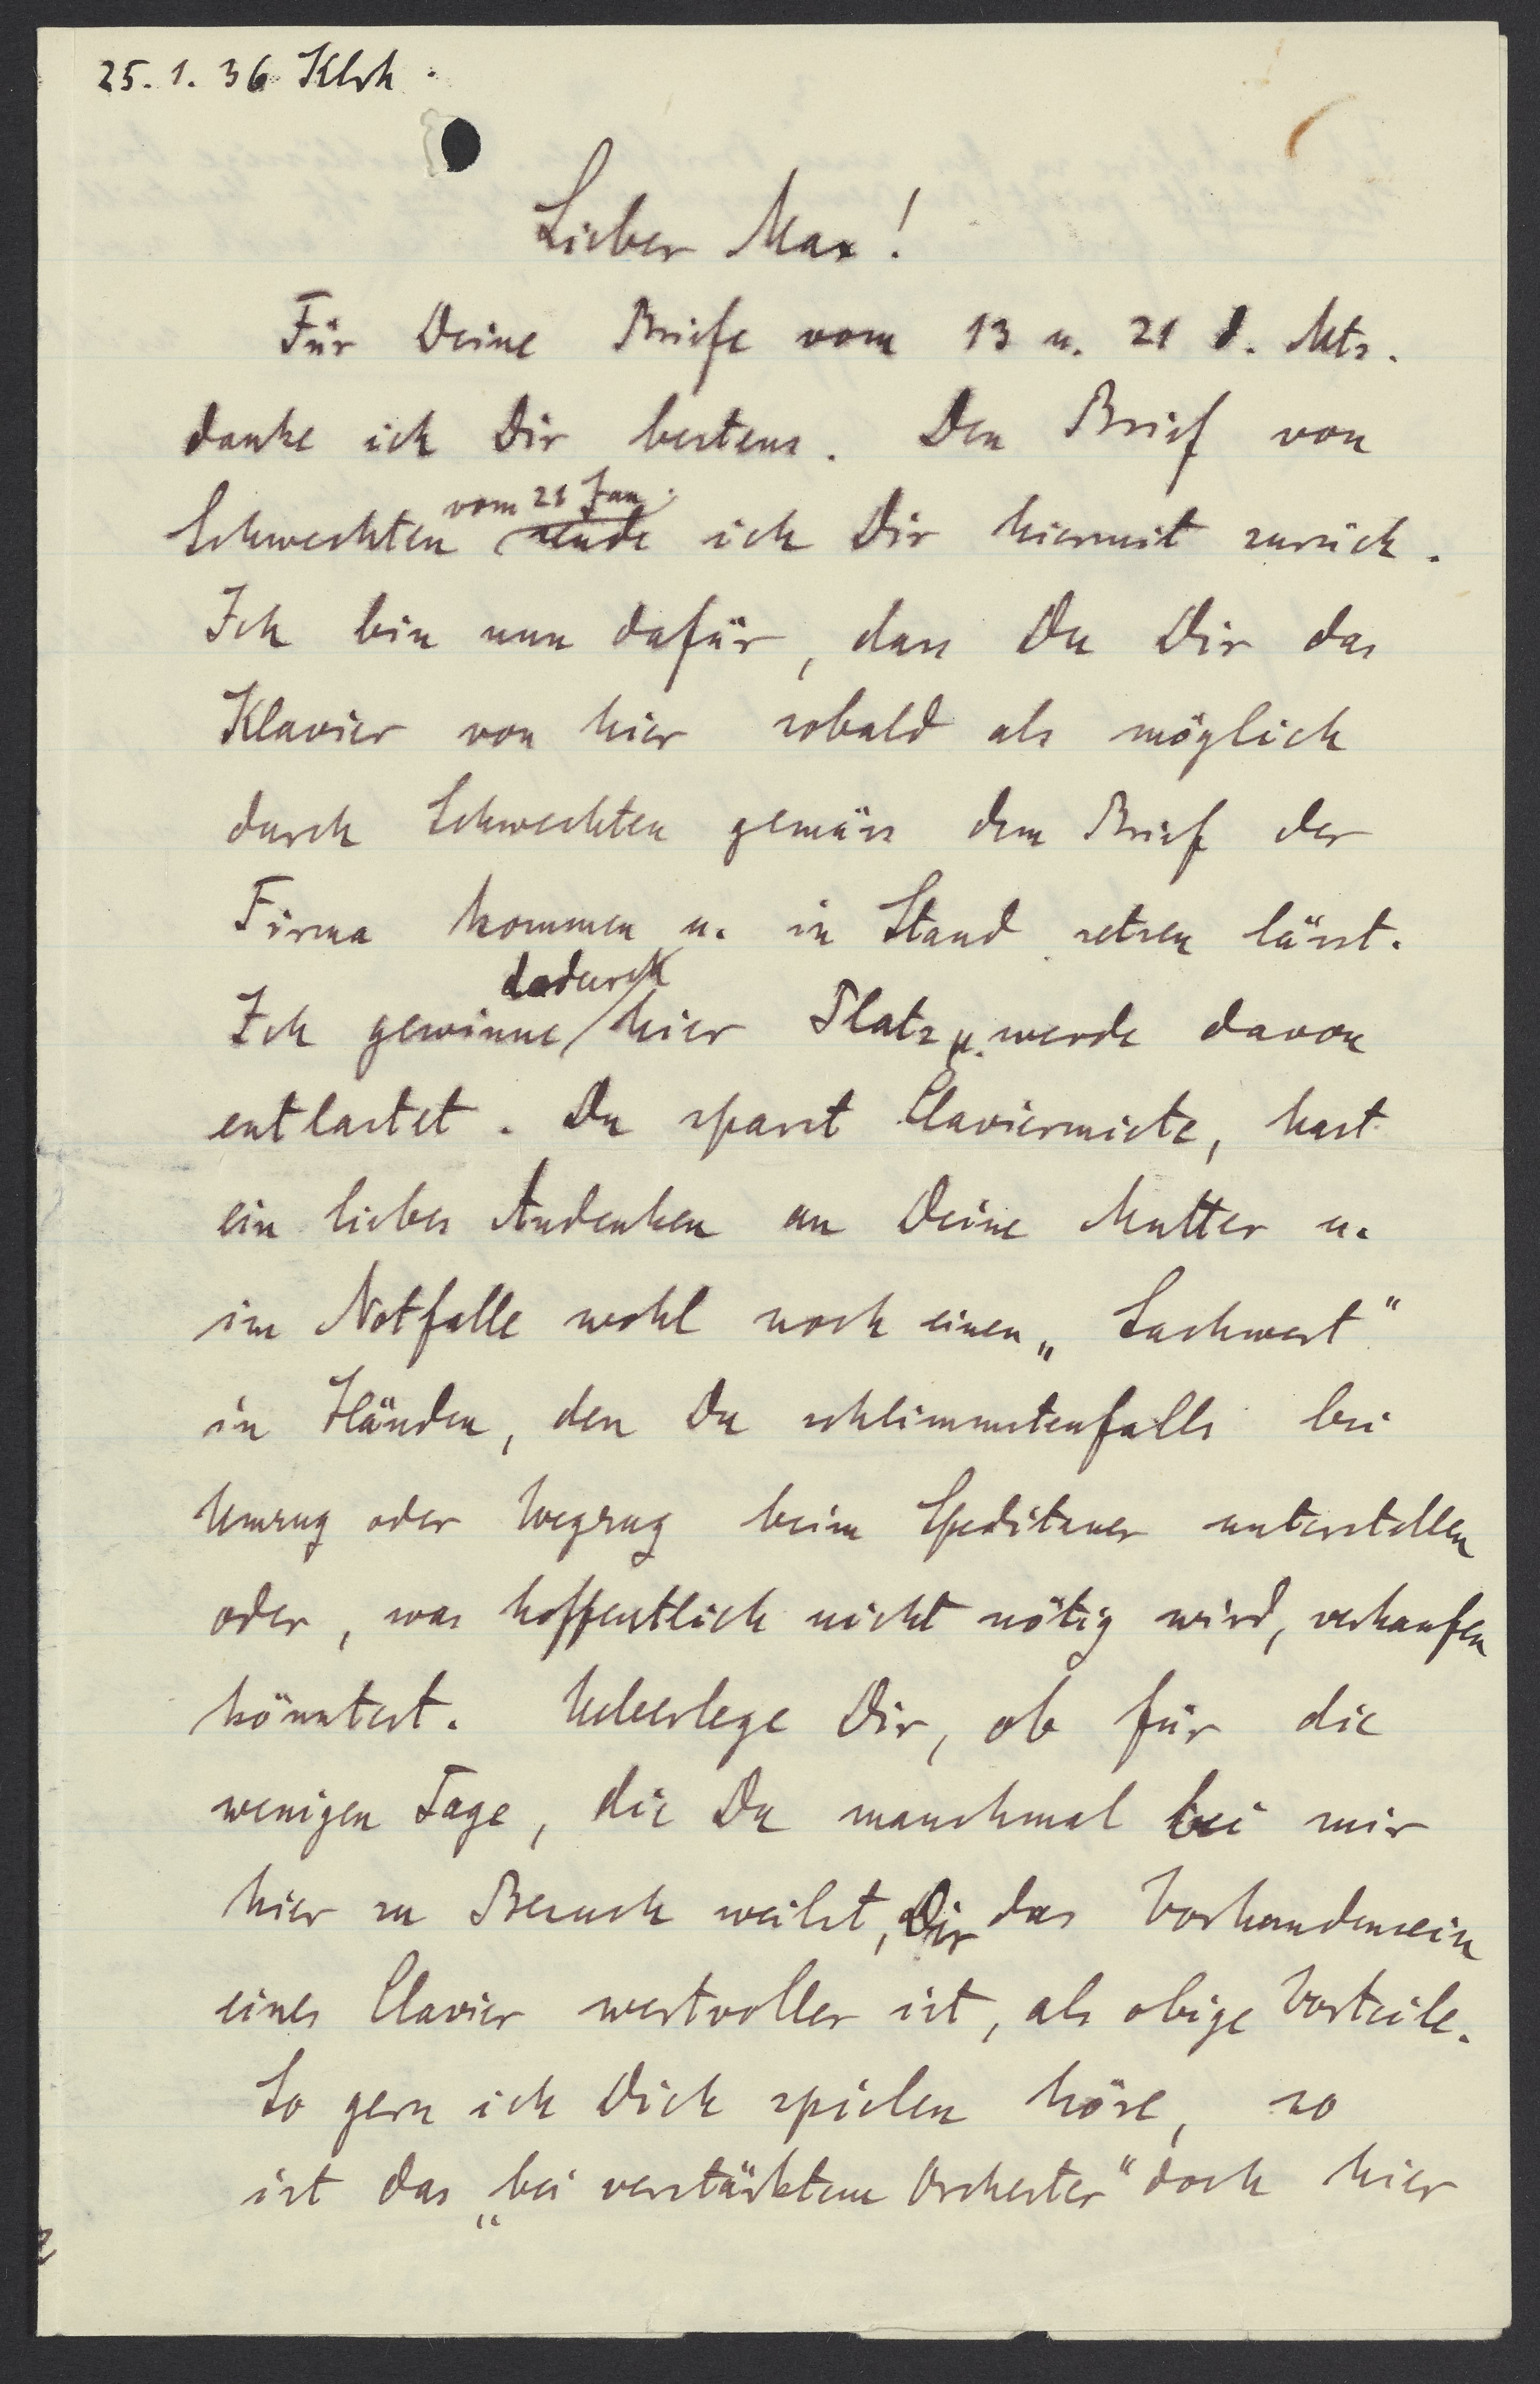 25. 1. 36 Klrh.
Lieber Max!
Für Deine Briefe vom 13 u. 21 d. Mts.
danke ich Dir bestens. Den Brief von
vom 21 Jan.
Schwechten sende ich Dir hiermit zurück.
Ich bin nun dafür, dass Du Dir das
Klavier von hier sobald als möglich
durch Schwechten gemäss dem Brief der
Firma kommen u. in Stand setzen lässt.
dadurch
Ich gewinne hier Platz u. werde davon
entlastet. Du sparst Claviermiete, hast
ein liebes Andenken an Deine Mutter u.
im Notfalle wohl noch einen „Sachwert"
in Händen, den Du schlimmstenfalls bei
Umzug oder Wegzug beim Speditener unterstellen
oder, was hoffentlich nicht nötig wird, verkaufen
könntest. Ueberlege Dir, ob für die
wenigen Tage, die Du manchmal bei mir
hier zu Besuch weilst, Dir das Vorhandensein
eines Clavier wertvoller ist, als obige Vorteile.
So gern ich Dich spielen höre, so
ist das „bei verstärktem Orchester" doch hier